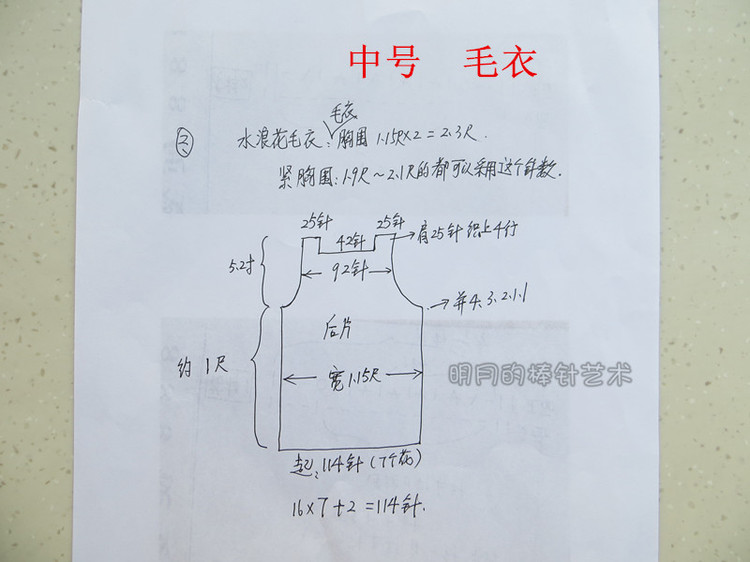 中号 毛衣
② 水浪花毛衣：毛衣胸围 1.15尺×2＝2.3尺.
紧胸围：1.9尺～2.1尺的都可以采用这个针数.
25针 42针 25针
肩25针 织上4行
92针
5.2寸
并4、3.2.1.1
后片
约 1尺
宽1.15尺
明月的棒针艺术
起：114针（7个花）
16×7＋2＝114针.